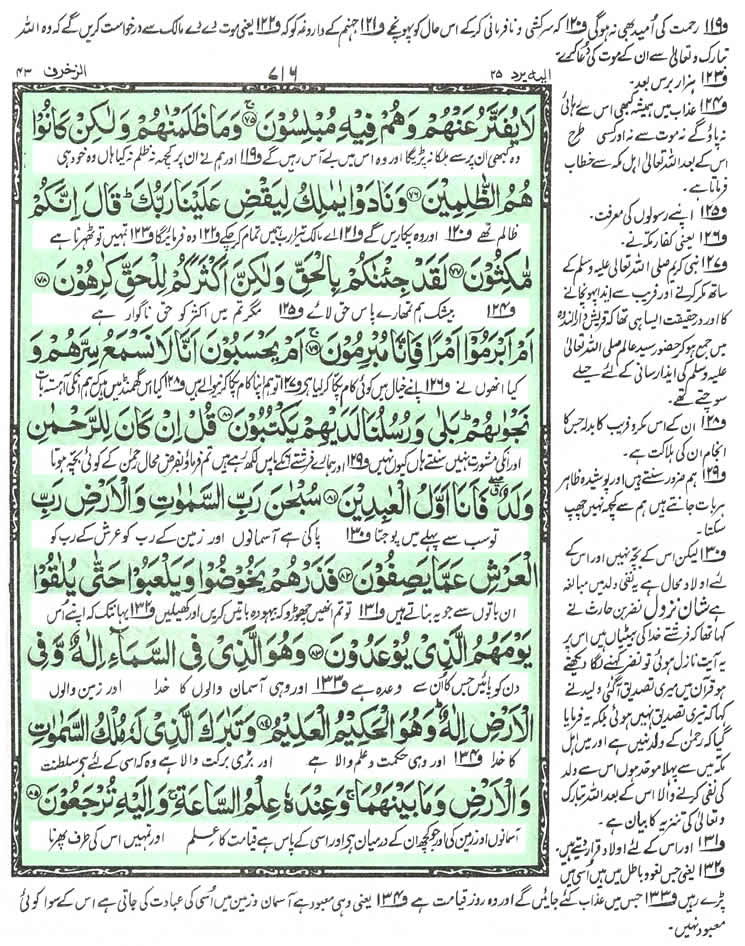 و۱۱۹ رحمت کی اُمید بھی نہ ہوگی و۱۲۰ کہ سرکشی و نافرمانی کرکے اس حال کو پہونچے و۱۲۱ جہنم کے داروغہ کو کہ و۱۲۲ یعنی موت دے دے مالک سے درخواست کریں گے کہ وہ اللہ
تبارک و تعالیٰ سے ان کے موت کی دُعا کرے۔
الیہ یرد ۲۵
۷۱۶
الزخرف ۴۳
لَا يُفَتَّرُ عَنْهُمْ وَهُمْ فِيْهِ مُبْلِسُوْنَ ۷۵ وَمَا ظَلَمْنٰهُمْ وَلٰكِنْ كَانُوْا
وہ کبھی ان پر سے ہلکا نہ پڑیگا اور وہ اس میں بے آس رہیں گے و۱۱۹ اور ہم نے ان پر کچھ ظلم نہ کیا ہاں وہ خود ہی
هُمُ الظّٰلِمِيْنَ ۷۶ وَنَادَوْا يٰمٰلِكُ لِيَقْضِ عَلَيْنَا رَبُّكَ ؕ قَالَ اِنَّكُمْ
ظالم تھے و۱۲۰ اور وہ پکاریں گے و۱۲۱ اے مالک تیرا رب ہمیں تمام کر چکے و۱۲۲ وہ فرمائے گا و۱۲۳ تمہیں تو ٹھہرنا ہے
مّٰكِثُوْنَ ۷۷ لَقَدْ جِئْنٰكُمْ بِالْحَقِّ وَلٰكِنَّ اَكْثَرَكُمْ لِلْحَقِّ كٰرِهُوْنَ ۷۸
و۱۲۴ بیشک ہم تمھارے پاس حق لائے و۱۲۵ مگر تم میں اکثر کو حق ناگوار ہے
اَمْ اَبْرَمُوْٓا اَمْرًا فَاِنَّا مُبْرِمُوْنَ ۷۹ اَمْ يَحْسَبُوْنَ اَنَّا لَا نَسْمَعُ سِرَّهُمْ وَ
کیا انھوں نے و۱۲۶ اپنے خیال میں کوئی کام پکا کر لیا ہے و۱۲۷ تو ہم اپنا کام پکا کرنیوالے ہیں و۱۲۸ کیا اس گھمنڈ میں ہیں کہ ہم انکی آہستہ بات
نَجْوٰىهُمْ ؕ بَلٰى وَرُسُلُنَا لَدَيْهِمْ يَكْتُبُوْنَ ۸۰ قُلْ اِنْ كَانَ لِلرَّحْمٰنِ
اور انکی مشورت نہیں سنتے ہاں کیوں نہیں و۱۲۹ اور ہمارے فرشتے انکے پاس لکھ رہے ہیں تم فرماؤ بفرض محال رحمٰن کے کوئی بچہ ہوتا
وَلَدٌ ۖ فَاَنَا اَوَّلُ الْعٰبِدِيْنَ ۸۱ سُبْحٰنَ رَبِّ السَّمٰوٰتِ وَالْاَرْضِ رَبِّ
تو سب سے پہلے میں پوجتا و۱۳۰ پاکی ہے آسمانوں اور زمین کے رب کو عرش کے رب کو
الْعَرْشِ عَمَّا يَصِفُوْنَ ۸۲ فَذَرْهُمْ يَخُوْضُوْا وَيَلْعَبُوْا حَتّٰى يُلٰقُوْا
ان باتوں سے جو یہ بناتے ہیں و۱۳۱ تو تم انھیں چھوڑو کہ بیہودہ باتیں کریں اور کھیلیں و۱۳۲ یہانتک کہ اپنے اُس
يَوْمَهُمُ الَّذِيْ يُوْعَدُوْنَ ۸۳ وَهُوَ الَّذِيْ فِي السَّمَآءِ اِلٰهٌ وَّفِي
دن کو پائیں جس کا اُن سے وعدہ ہے و۱۳۳ اور وہی آسمان والوں کا خدا اور زمین والوں
الْاَرْضِ اِلٰهٌ ؕ وَهُوَ الْحَكِيْمُ الْعَلِيْمُ ۸۴ وَتَبٰرَكَ الَّذِيْ لَهٗ مُلْكُ السَّمٰوٰتِ
کا خدا و۱۳۴ اور وہی حکمت و علم والا ہے اور بڑی برکت والا ہے وہ کہ اسی کے لئے ہے سلطنت
وَالْاَرْضِ وَمَا بَيْنَهُمَا ۚ وَعِنْدَهٗ عِلْمُ السَّاعَةِ ۚ وَاِلَيْهِ تُرْجَعُوْنَ ۸۵
آسمانوں اور زمین کی اور جو کچھ ان کے درمیان ہے اور اسی کے پاس ہے قیامت کا علم اور تمہیں اس کی طرف پھرنا
و۱۲۳ ہزار برس بعد۔
و۱۲۴ عذاب میں ہمیشہ کبھی اس سے رہائی
نہ پاؤگے نہ موت سے نہ اور کسی طرح
اس کے بعد اللہ تعالیٰ اہل مکہ سے خطاب
فرماتا ہے۔
و۱۲۵ اپنے رسولوں کی معرفت۔
و۱۲۶ یعنی کفار مکہ نے۔
و۱۲۷ نبی کریم صلی اللہ تعالیٰ علیہ وسلم کے
ساتھ مکر کرنے اور فریب سے ایذا پہونچانے
کا اور درحقیقت ایسا ہی تھا کہ قریش دارالندوہ
میں جمع ہوکر حضور سید عالم صلی اللہ تعالیٰ
علیہ وسلم کی ایذا رسانی کے لئے حیلے
سوچتے تھے۔
و۱۲۸ ان کے اس مکر و فریب کا بدلہ جس کا
انجام ان کی ہلاکت ہے۔
و۱۲۹ ہم ضرور سنتے ہیں اور پوشیدہ ظاہر
ہر بات جانتے ہیں ہم سے کچھ نہیں چھپ
سکتا۔
و۱۳۰ لیکن اس کے بچہ نہیں اور اس کے
لئے اولاد محال ہے یہ نفی ولد میں مبالغہ
ہے شان نزول نضر بن حارث نے
کہا تھا کہ فرشتے خدا کی بیٹیاں ہیں اس پر
یہ آیت نازل ہوئی تو نضر کہنے لگا دیکھتے
ہو قرآن میں میری تصدیق آگئی ولید نے
کہا کہ تیری تصدیق نہیں ہوئی بلکہ یہ فرمایا
گیا کہ رحمٰن کے ولد نہیں ہے اور میں اہل
مکہ میں سے پہلا موحد ہوں اس سے ولد
کی نفی کرنے والا اس کے بعد اللہ تبارک
و تعالیٰ کی تنزیہ کا بیان ہے۔
و۱۳۱ اور اس کے لئے اولاد قرار دیتے ہیں۔
و۱۳۲ یعنی جس لغو و باطل میں ہیں اُسی میں
پڑے رہیں و۱۳۳ جس میں عذاب کئے جائیں گے اور وہ روز قیامت ہے و۱۳۴ یعنی وہی معبود ہے آسمان و زمین میں اُسی کی عبادت کی جاتی ہے اس کے سوا کوئی
معبود نہیں۔